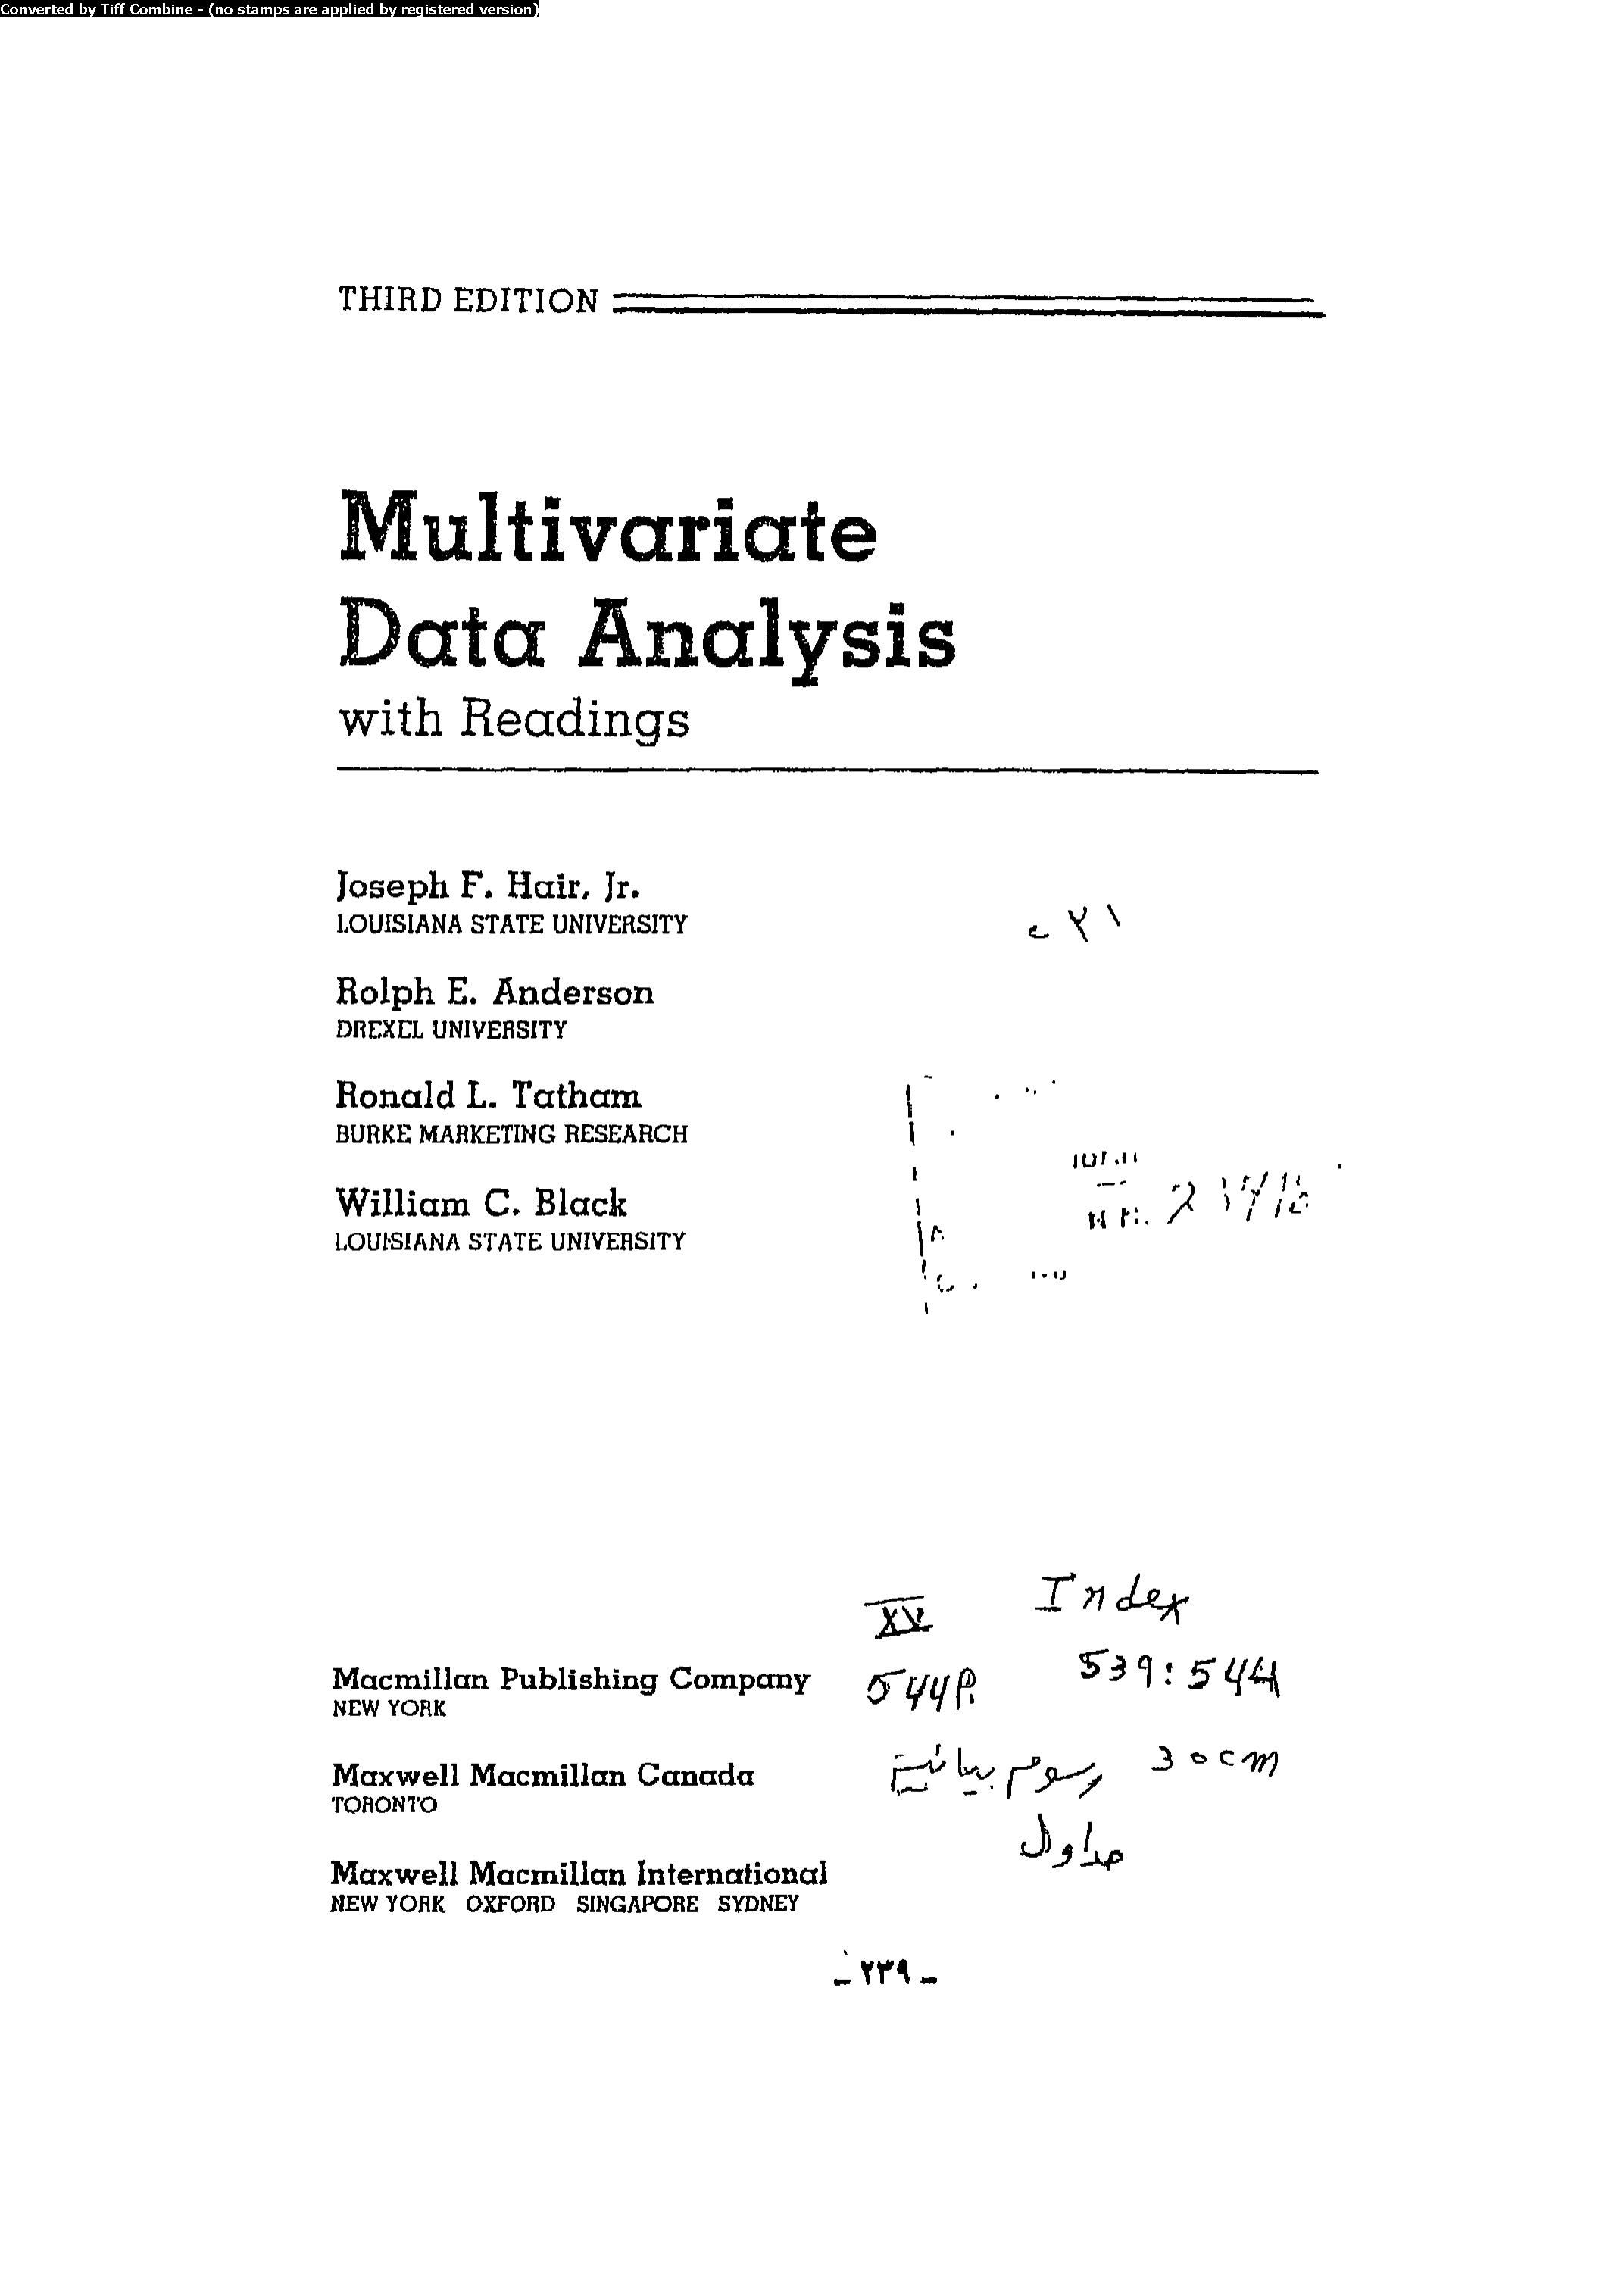 Converted by Tiff Combine - (no stamps are applied by registered version)
THIRD EDITION
Multivariate
Data Analysis
with Readings
Joseph F. Hair, Jr.
LOUISIANA STATE UNIVERSITY
Rolph E. Anderson
DREXEL UNIVERSITY
Ronald L. Tatham
BURKE MARKETING RESEARCH
William C. Black
LOUISIANA STATE UNIVERSITY
XV Index
Macmillan Publishing Company 544P. 539:544
NEW YORK
Maxwell Macmillan Canada
رسوم بيانية 30cm
TORONTO
جداول
Maxwell Macmillan International
NEW YORK OXFORD SINGAPORE SYDNEY
- ٢٣٩ -